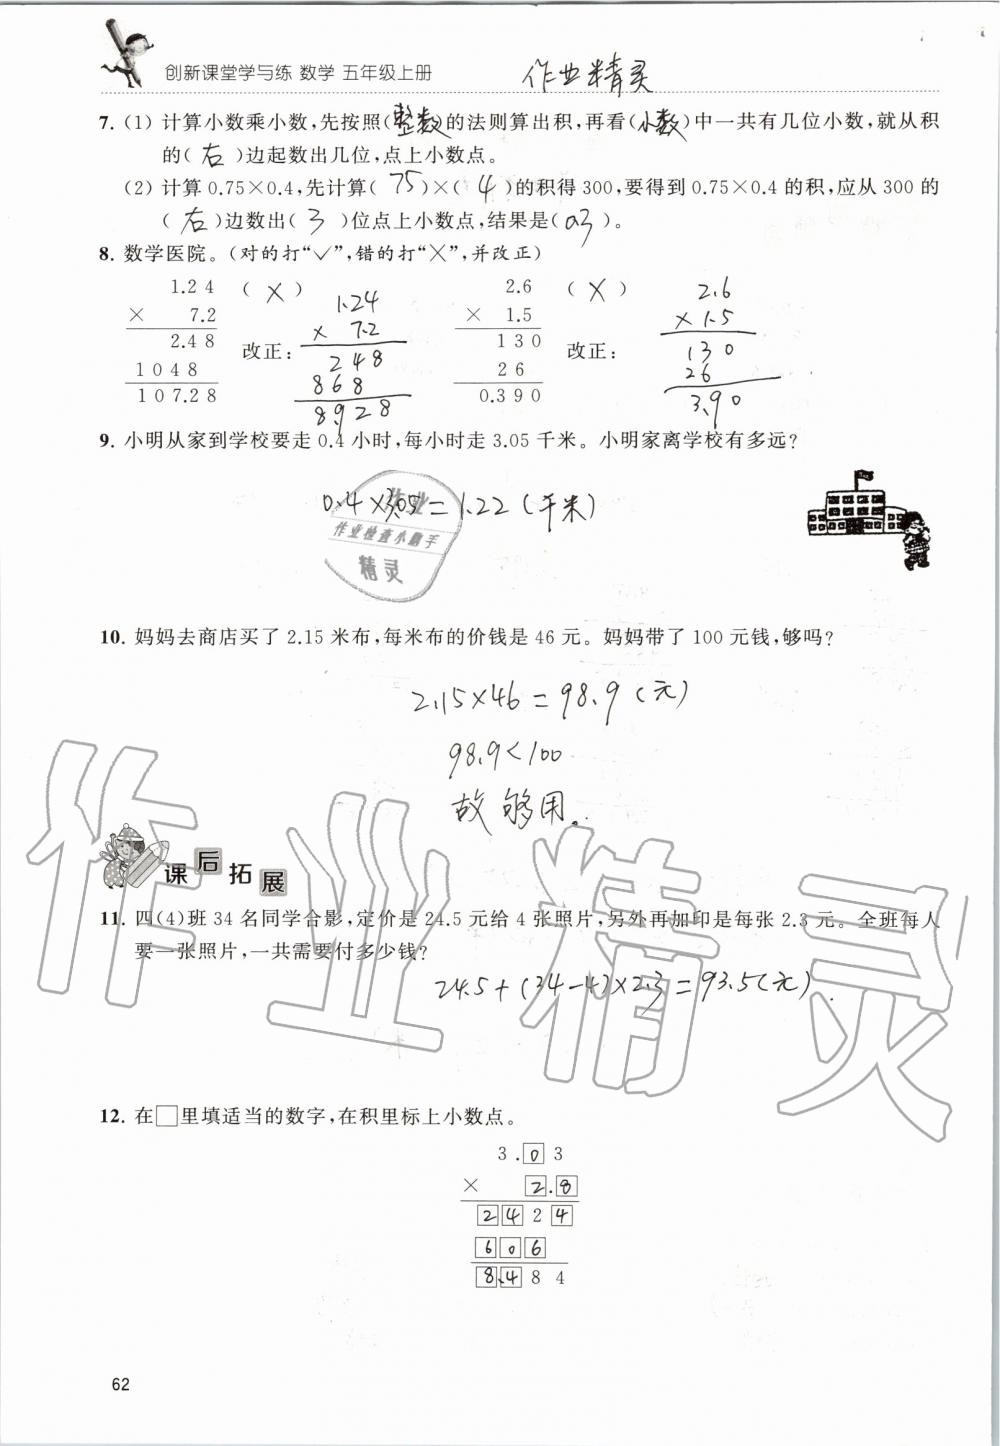 创新课堂学与练 数学 五年级上册 作业精灵
7. (1) 计算小数乘小数,先按照(整数)的法则算出积,再看(小数)中一共有几位小数,就从积
的(右)边起数出几位,点上小数点。
(2) 计算 0.75×0.4,先计算(75)×(4)的积得 300,要得到 0.75×0.4 的积,应从 300 的
(右)边数出(3)位点上小数点,结果是(0.3)。
8. 数学医院。(对的打“✓”,错的打“×”,并改正)
1.24 (×) 1.24 2.6 (×) 2.6
× 7.2 × 7.2 × 1.5 × 1.5
2.48 改正: 248 130 改正: 130
1048 868 26 26
107.28 8.928 0.390 3.90
9. 小明从家到学校要走 0.4 小时,每小时走 3.05 千米。小明家离学校有多远?
0.4×3.05=1.22(千米)
作业
作业检查小帮手
精灵
10. 妈妈去商店买了 2.15 米布,每米布的价钱是 46 元。妈妈带了 100 元钱,够吗?
2.15×46=98.9(元)
98.9<100
故够用。
作业精灵
课后拓展
11. 四(4)班 34 名同学合影,定价是 24.5 元给 4 张照片,另外再加印是每张 2.3 元。全班每人
要一张照片,一共需要付多少钱?
24.5+(34-4)×2.3=93.5(元).
12. 在□里填适当的数字,在积里标上小数点。
3.03
× 2.8
2424
606
8.484
62